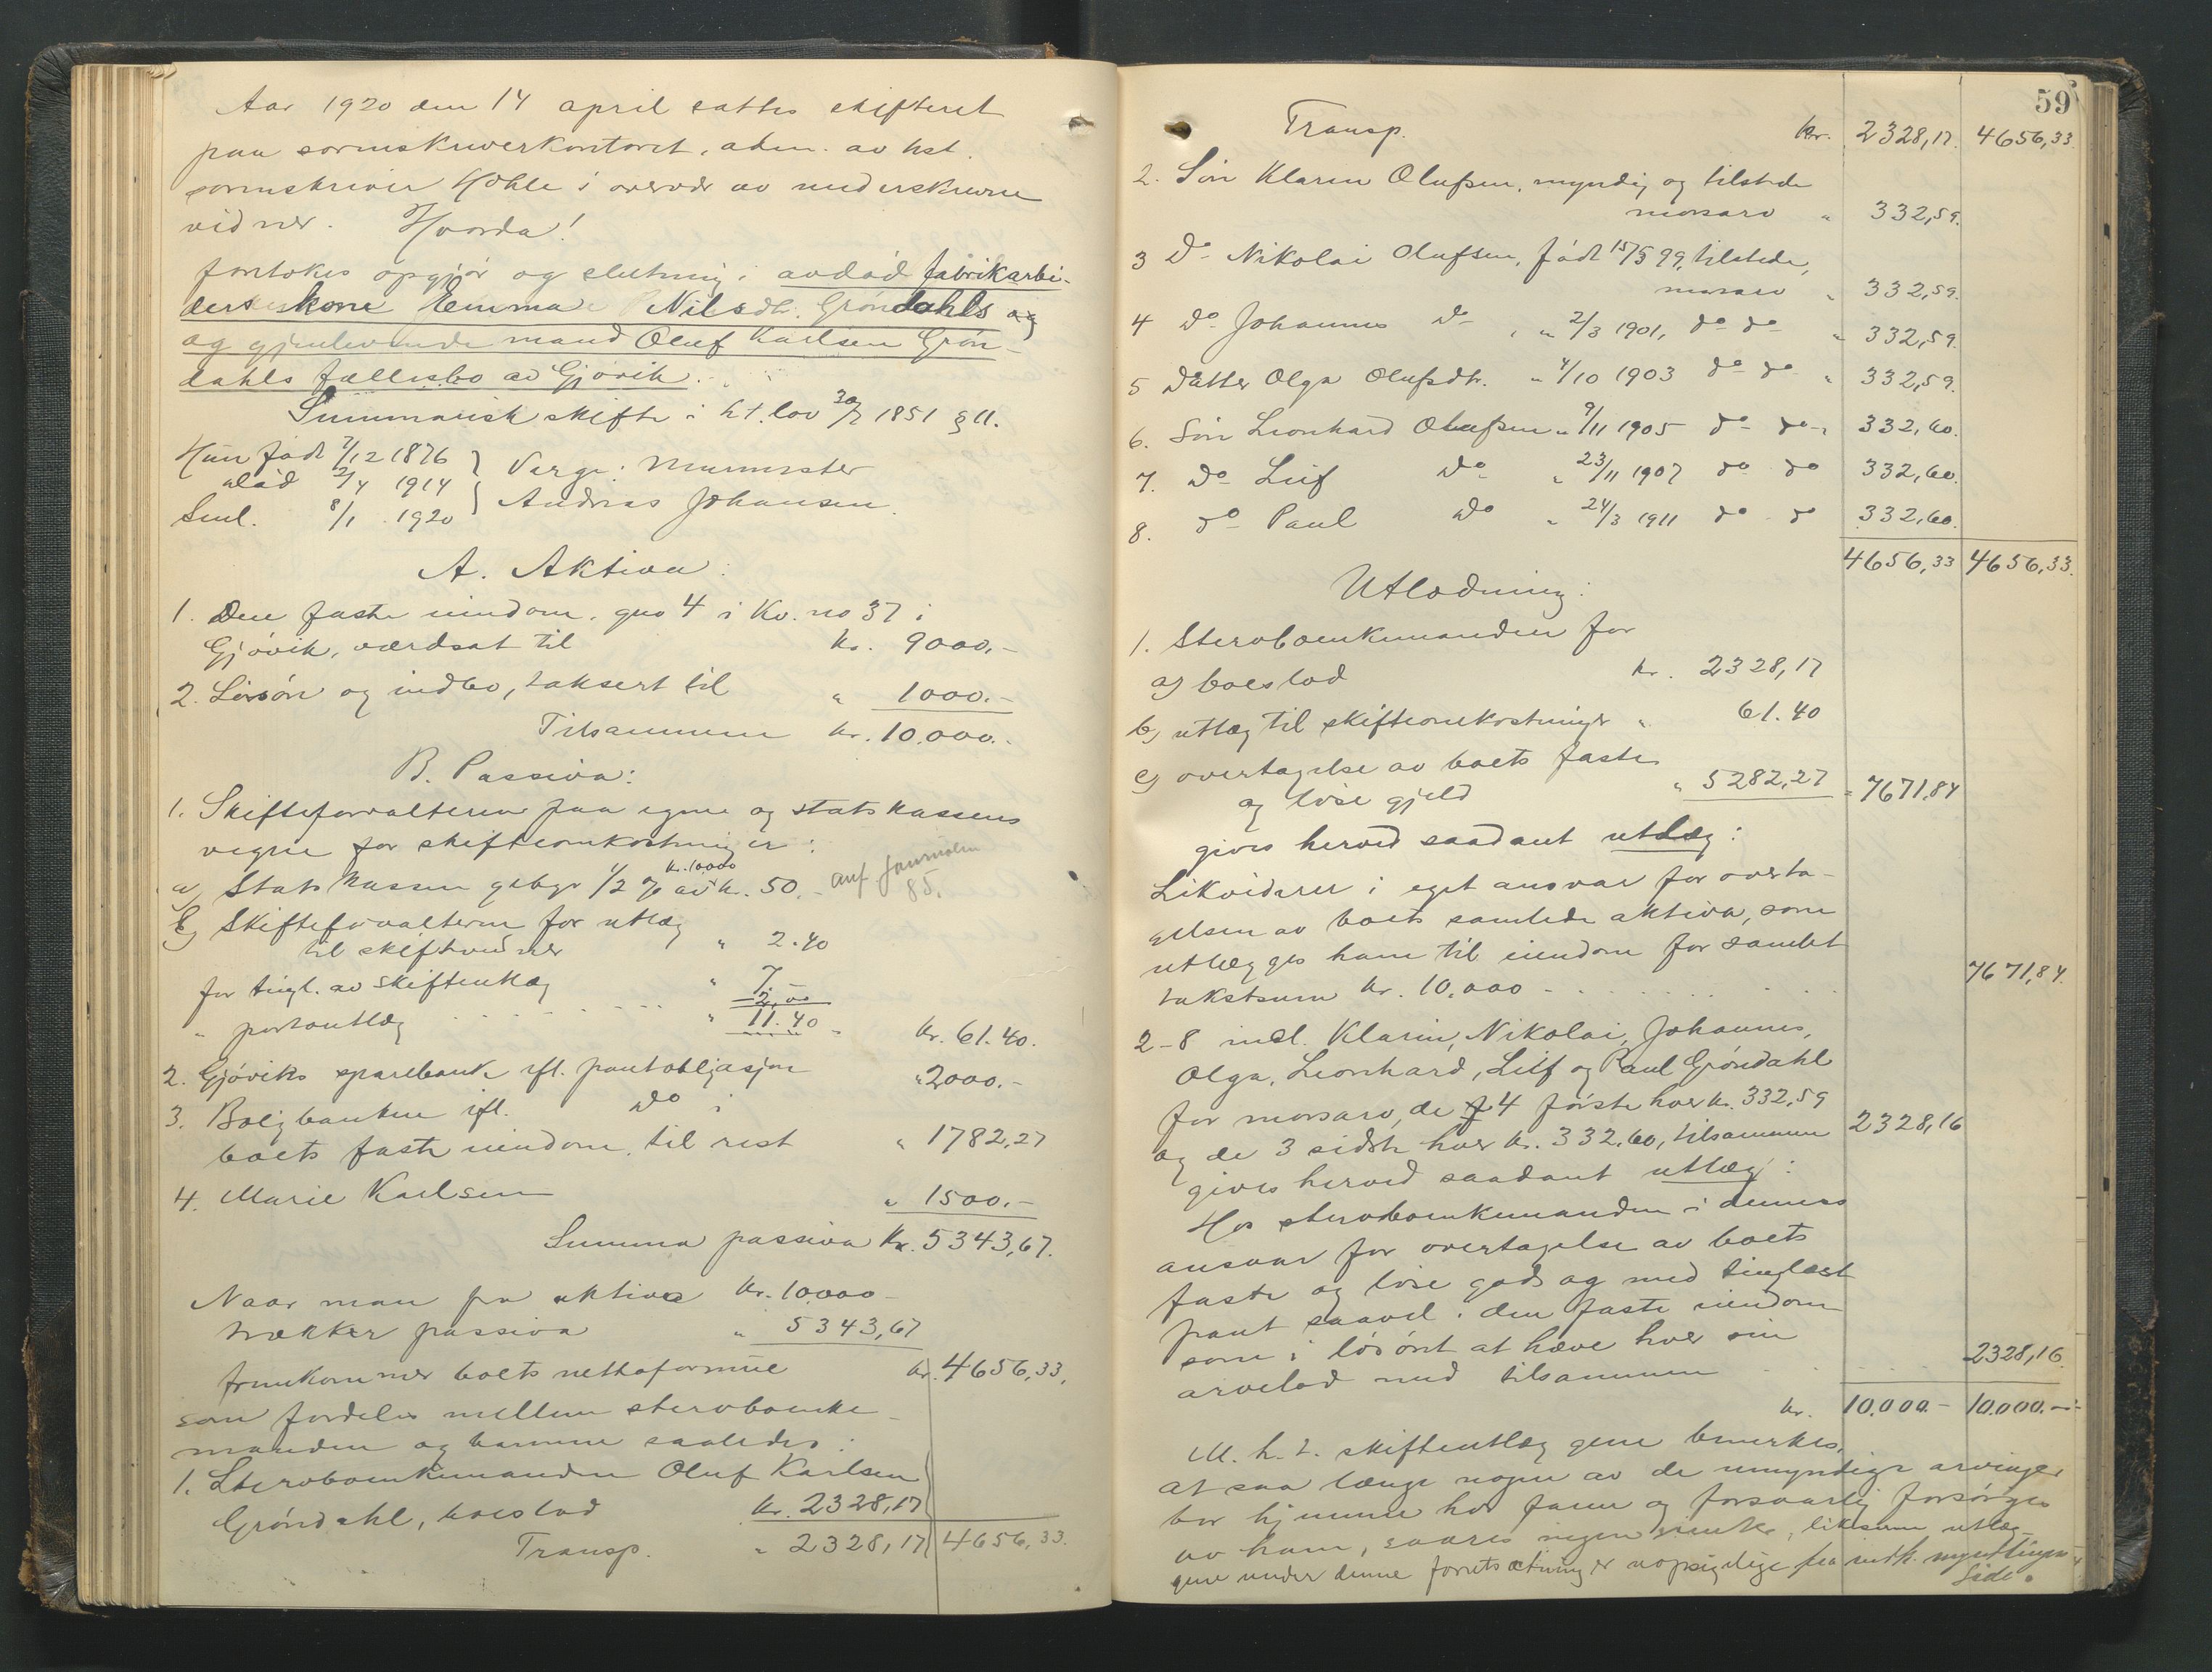 Aar 1920 den 14 april sattes skifteret
paa sorenskriverkontoret, adm. av kst.
sorenskriver Hohle i overvær av underskrevne
vidner. Hvorda!
foretokes opgjør og slutning i avdød fabrikarbei-
derskone Emma Nilsdtr. Grøndahls og
og gjenlevende mand Oluf Karlsen Grøn-
dahls fællesbo av Gjøvik.
Summarisk skifte i h.t. lov 30/7 1851 § 11.
Hun født 7/12 1876 } Verge: Murmester
død 2/4 1914
Saml. 8/1 1920 } Andreas Johansen.
A. Aktiva:
1. Den faste eiendom, gno 4 i Kv. no 37 i
Gjøvik, værdsat til kr. 9000.-
2. Løsøre og indbo, taksert til " 1000.-
Tilsammen kr. 10.000.-
B. Passiva:
1. Skifteforvalteren paa egne og statskassens
vegne for skifteomkostninger:
a) Statskassen gebyr 1/2 % av kr. 10.000 kr. 50.- anf. journalen
85.
b) Skifteforvalteren for utlæg
til skiftevidner " 2.40
for tingl. av skifteutlæg " 7.-
" portoutlæg " 2,00
11.40 - kr. 61.40.
2. Gjøviks sparebank ifl. pantobligasjon " 2000.-
3. Boligbanken ifl. do i
boets faste eiendom, til rest " 1782,27
4. Marie Karlsen " 1500.-
Summa passiva kr. 5343,67.
Naar man fra aktiva kr. 10.000 -
trækker passiva " 5343,67
fremkommer boets nettoformue kr. 4656,33,
som fordeles mellem stervboenke-
manden og barnene saaledes:
1. Stervboenkemanden Oluf Karlsen
Grøndahl, boeslod kr. 2328,17
Transp. " 2328,17 4656,33.
59
Transp. kr. 2328,17. 4656,33.
2. Søn Klarin Olufsen, myndig og tilstede
morsarv " 332,59.
3 Do Nikolai Olufsen, født 15/5 99, tilstede,
morsarv " 332,59.
4 Do Johannes do , " 2/3 1901, do do " 332,59.
5 Datter Olga Olufsdtr. " 4/10 1903 do do " 332,59.
6. Søn Leonhard Olufsen " 9/11 1905 do do " 332,60.
7. Do Leif do " 23/11 1907 do do 332,60.
8. do Paul do " 24/3 1911 do do 332,60.
4656,33 4656,33.
Utlodning:
1. Stervboenkemanden for
a) boeslod kr. 2328,17
b) utlæg til skifteomkostninger " 61.40
c) overtagelse av boets faste
og løse gjeld " 5282,27 " 7671,84
gives herved saadant utlæg:
Likviderer i eget ansvar for overta-
gelsen av boets samlede aktiva, som
utlægges ham til eiendom for samlet
takstsum kr. 10.000 - 7671,84.
2-8 incl. Klarin, Nikolai, Johannes,
Olga, Leonhard, Leif og Paul Grøndahl
for morsarv, de 4 første hver kr. 332,59
og de 3 sidste hver kr. 332,60, tilsammen 2328,16
gives herved saadant utlæg:
Hos stervboenkemanden i dennes
ansvar for overtagelse av boets
faste og løse gods og med tinglæst
pant saavel i den faste eiendom
som i løsøret at hæve hver sin
arvelod med tilsammen 2328,16.
kr. 10.000.- 10.000.-
M. h. t. skifteutlæggene bemerkes,
at saa længe nogen av de umyndige arvinger
bor hjemme hos faren og forsvarlig forsørges
av ham, svares ingen rente, likesom utlæg-
gene under denne forutsætning er uopsigelige fra indtil myndlingenes
side.